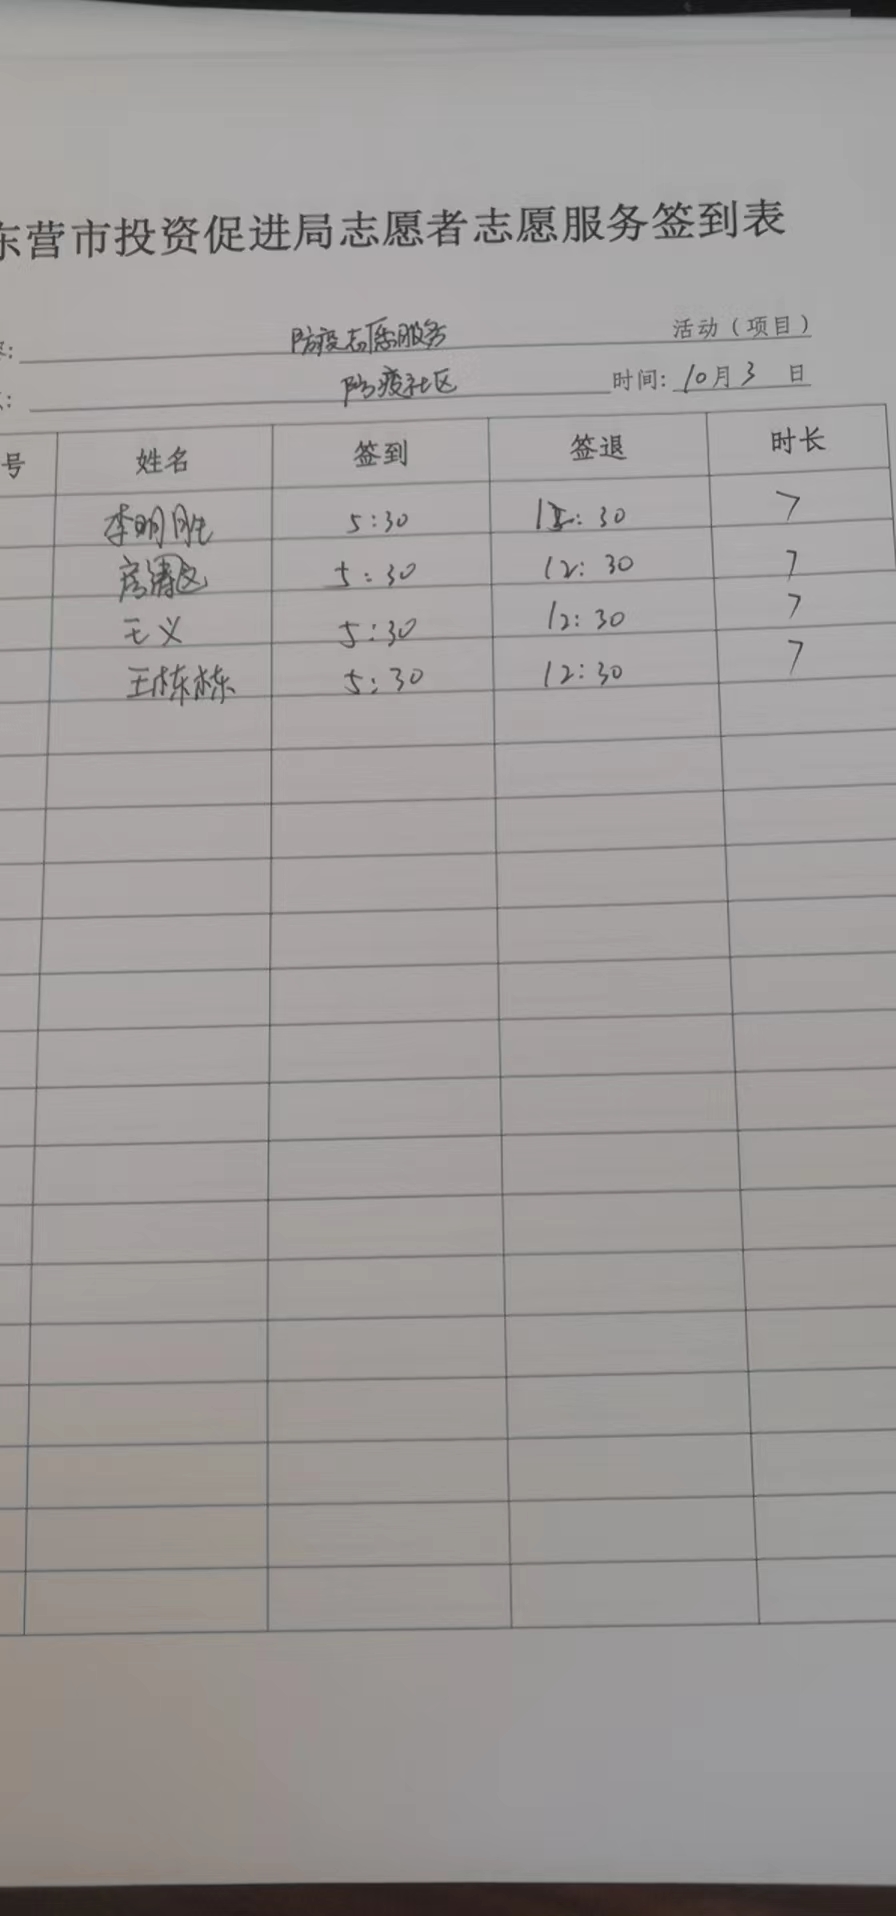 东营市投资促进局志愿者志愿服务签到表
防疫志愿服务 活动（项目）
防疫社区 时间: 10月3 日
号 姓名 签到 签退 时长
李明胜 5:30 12:30 7
5:30 12:30 7
王义 5:30 12:30 7
王栋栋 5:30 12:30 7